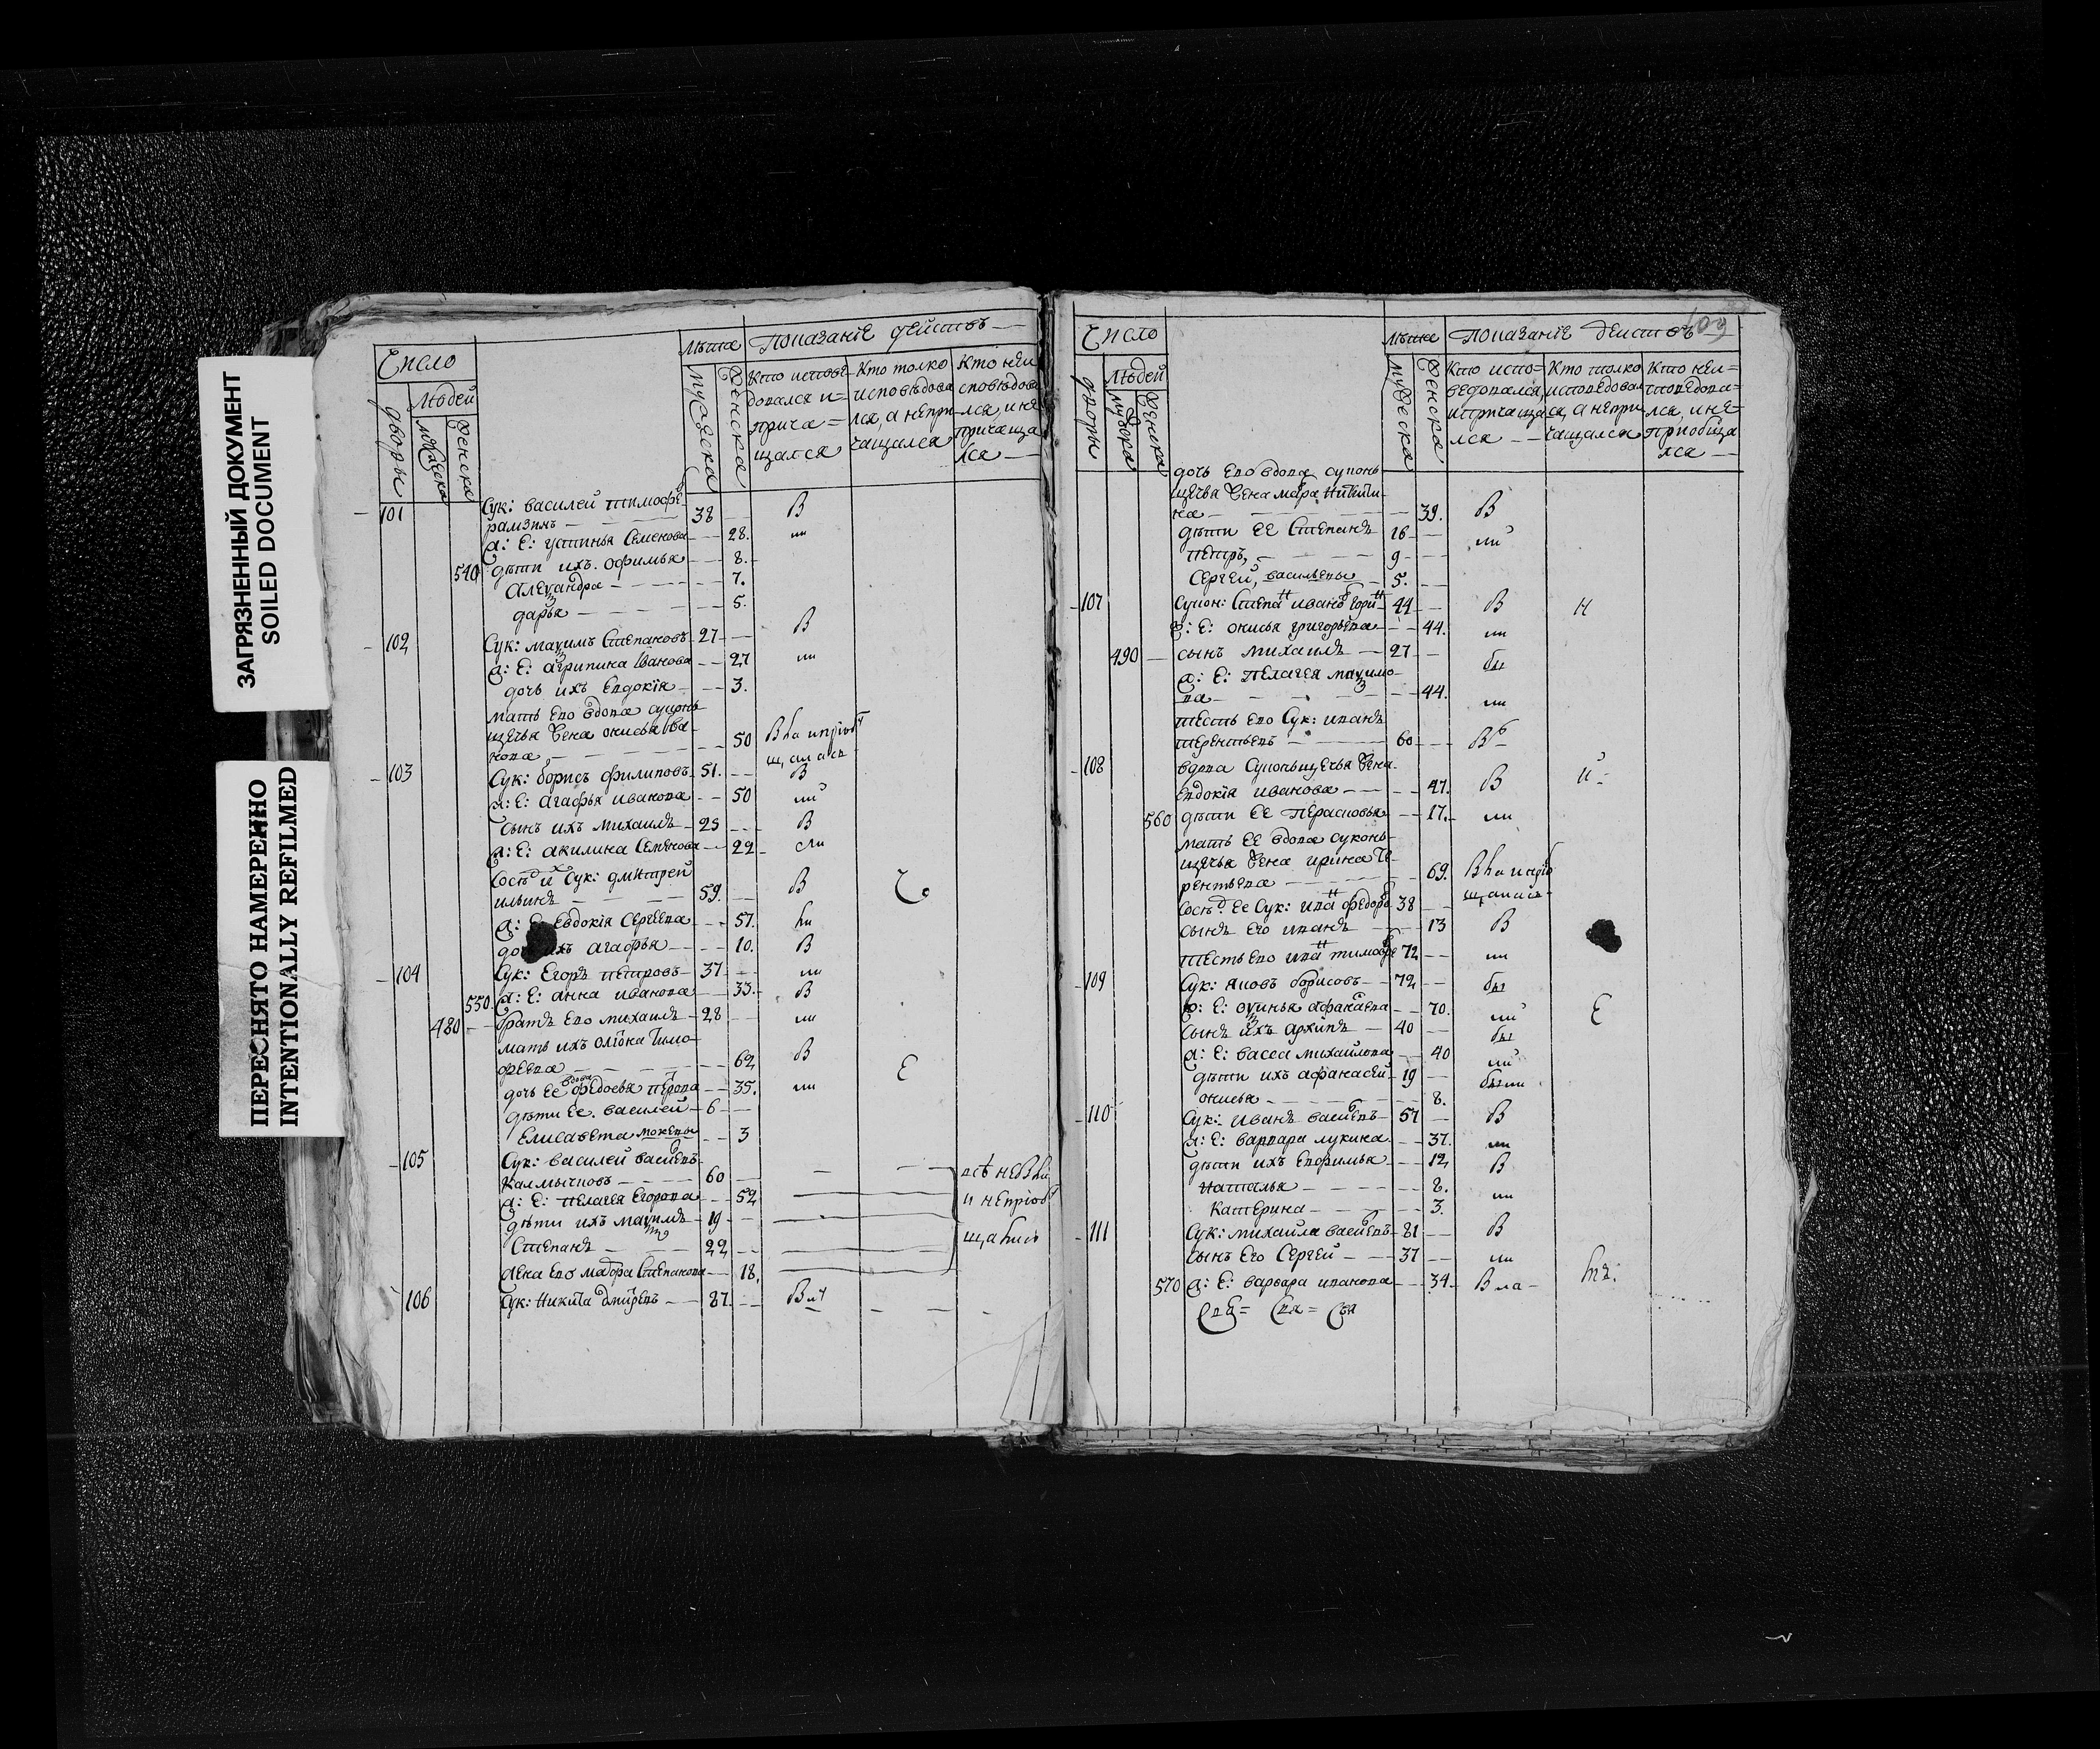 ЗАГРЯЗНЕННЫЙ ДОКУМЕНТ
SOILED DOCUMENT
ПЕРЕСНЯТО НАМЕРЕННО
INTENTIONALLY REFILMED
Число
Лѣта
Показанiе дѣйствъ
дворы
Людей
мужеска
женска
мужеска
женска
Кто исповѣ-
довался и=
прича=
щался
Кто толко
исповѣдова
лся, а непри
чащался
Кто неи
сповѣдова
лся, и не
причаща
лся
101 Сук: василей тимофѣ
рамзинъ 38 В
ж: Е: устинья Семенова 28.
540 дѣти ихъ. Офимья 8.
Александра 7.
дарья 5.
102 Сук: маѯимъ Степановъ 27 В
ж: Е: агрипина Iванова 27
дочь ихъ Евдокiя 3.
мать Ево вдова суконь
щечья жена онисья Iва
нова 50
103 Сук: борисъ филиповъ 51. В
ж: Е: агафья иванова 50
сынъ ихъ михаилъ 25 В
ж: Е: акилина Семенова 22
Сосѣд их Сук: дмитрей
ильинъ 59. В
ж: Евдокiя Сергеева 57.
ихъ агафья 10. В
104 Сук: Егоръ петровъ 37
550 ж: Е: анна иванова 33. В
480 братъ Ево михаилъ 28
мать ихъ Тимо
феева 62 В
дочь Ее вдова федосья 35.
дѣти Ее. василей 6
Елисавета 3
105 Сук: василей васильевъ
Калмычновъ 60
ж: Е: пелагея Егорова 52
дѣти ихъ маѯимъ 19
Степанъ 22
жена Ево марфа Степанова 18.
всѣ
и непрiоб
щались
106 Сук: Никита дмитревъ 87
Число
Лѣта
Показанiе действъ
109
дворы
Людей
мужска
женска
мужеска
женска
Кто испо=
ведовался,
и причаща
лся
Кто толко
исповедовал
ся, а непри
чащался
Кто неи=
споведова=
лся, и не=
приобща
лся
дочь Ево вдова суконь
щечья жена марфа Никити
на 39. В
дѣти ЕЕ Степанъ 16
петръ, 9
Сергей, васильевы 5.
107 Сукон: Степан иванов 44 В
ж: Е: онисья григорьева 44.
490 сынъ михаилъ 27
ж: Е: пелагея маѯимо
ва 44.
тесть Ево Сук: иванъ
терентьевъ 60
108 вдова Суконьщечья жена
Евдокiя иванова 47. В
560 дѣти ЕЕ перасковья 17.
мать ЕЕ вдова суконь
щечья жена ирина Те
рентьева 69.
Сосѣд Ее Сук: иван федоров 38
сынъ Его иванъ 13 В
тесть Ево иван тимофе 72
109 Сук: яковъ борисовъ 72
ж: Е: аѳанасева 70.
Сынъ ихъ архипъ 40
ж: Е: васса михайлова 40
дѣти ихъ афанасей 19
онисья 8.
110 Сук: Иванъ васильевъ 57 В
ж: Е: варвара лукина 37.
дѣти ихъ Евфимья 12 В
Наталья 8.
Катерина 3.
111 Сук: михайла васильевъ 81 В
Сынъ Его Сергей 37
570 ж: Е: варвара иванова 34.